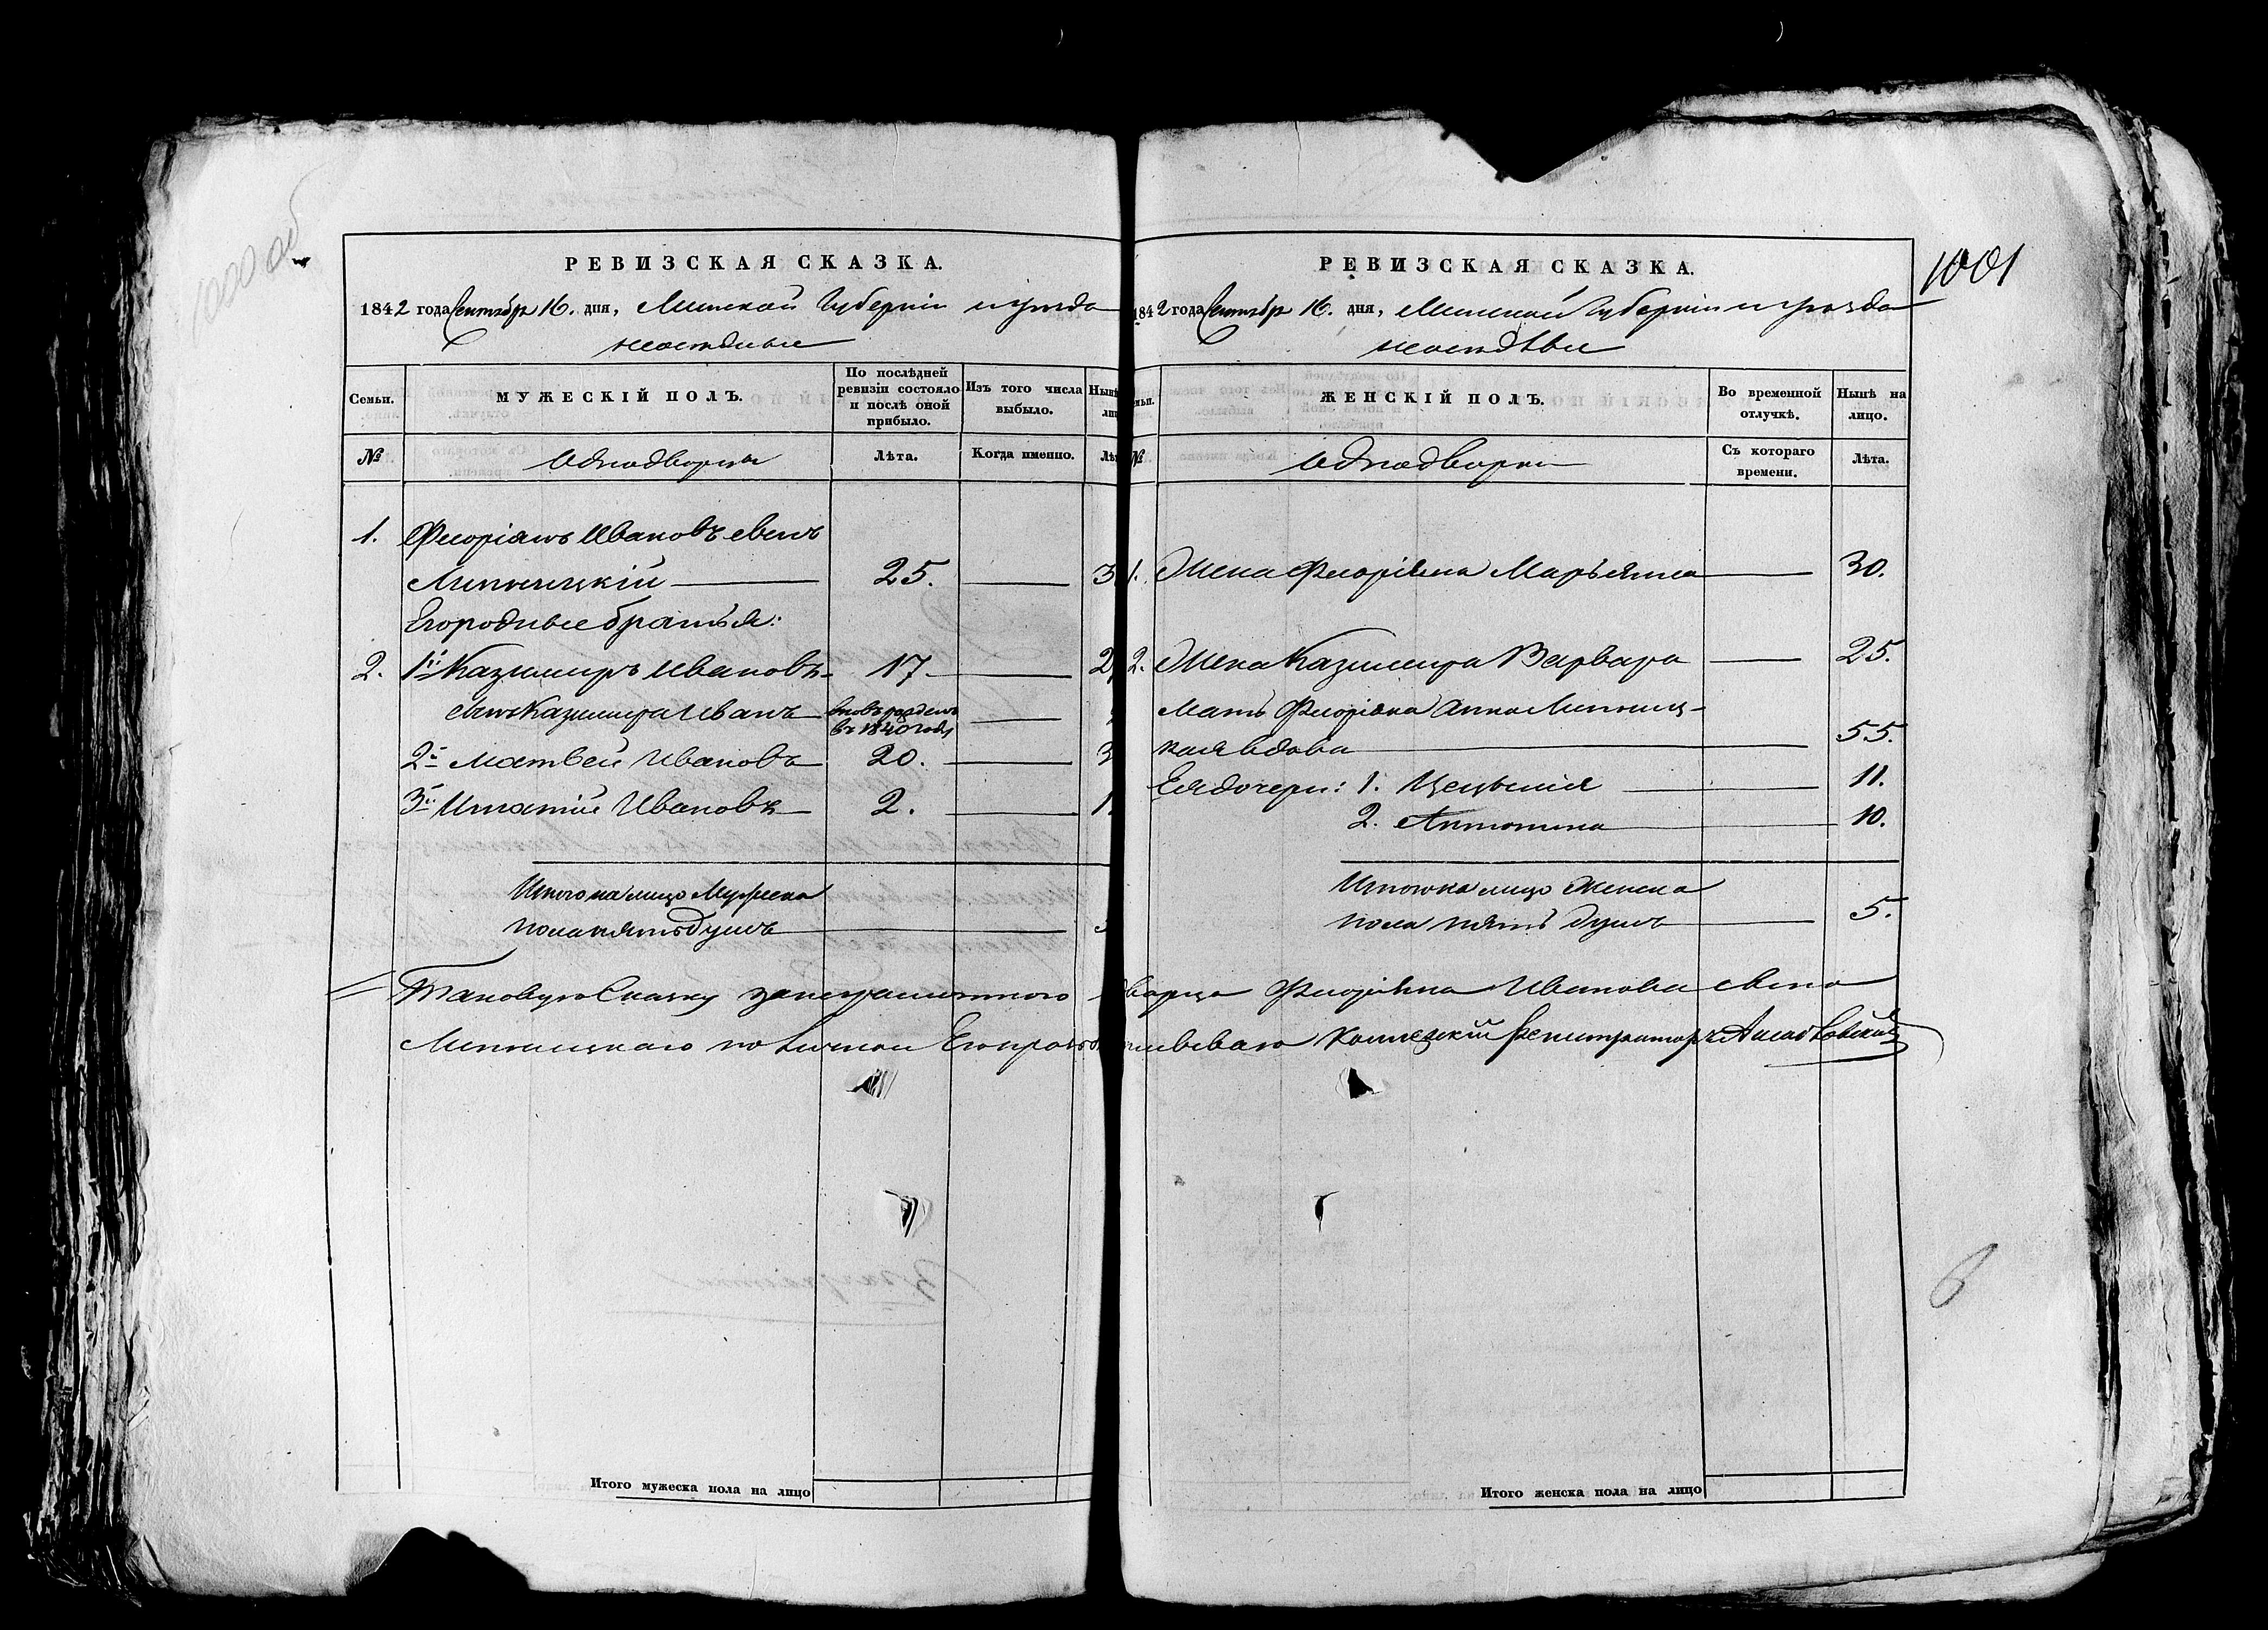 1000 об
РЕВИЗСКАЯ СКАЗКА.
1842 года Сентября 16. дня, Минской Губерніи и уезда
неоседлые
Семьи.
МУЖЕСКІЙ ПОЛЪ.
По послѣдней ревизіи состояло и послѣ оной прибыло.
Изъ того числа выбыло.
Нынѣ
№
Однодворцы
Лѣта.
Когда именно.
1. Флоріянъ Ивановъ сынъ
Липницкій 25. 3
Егородные братья:
2. 1й Казимиръ Ивановъ 17. 2
сынъ Казимира Иванъ вновь рожденъ
въ 1840 году
2й Матвей Ивановъ 20. 3
3й Игнатій Ивановъ 2. 1
Итого на лицо Мужеска
пола пять душъ
Таковую Сказку за неграмотного
Липницкаго по личной Его прозьбѣ
Итого мужеска пола на лицо
1001
РЕВИЗСКАЯ СКАЗКА.
1842 года Сентября 16. дня, Минской Губерніи и уезда
неоседлые
ЖЕНСКІЙ ПОЛЪ.
Во временной отлучкѣ.
Нынѣ на лицо.
№
Однодворки
Съ котораго времени.
Лѣта.
1. Жена Флоріяна Марьянна 30.
2. Жена Казимира Варвара 25.
Мать Флоріяна Анна Липниц-
кая вдова 55.
Ея дочери: 1. Цецылія 11.
2. Антонина 10.
Итого на лицо Женска
пола пять душъ 5.
Флоріяна Иванова сына
Коллежскій Регистраторъ
Итого женска пола на лицо